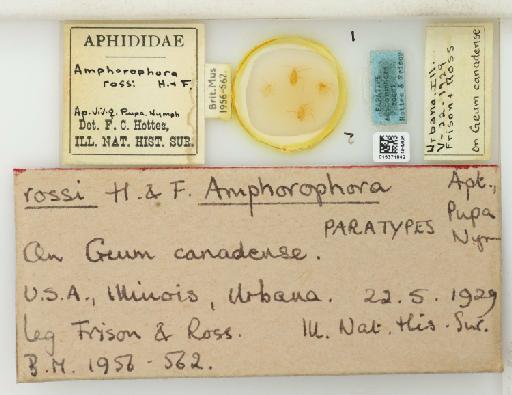 APHIDIDAE
Amphorophora
rossi H. & F.
Ap. viv. ♀. Pupa. Nymph
Det. F. C. Hottes,
ILL. NAT. HIST. SUR.
Brit. Mus
1956-562.
1
2
PARATYPE
Amphorophora
rossi
Hottes & Frison
Urbana, Ill.
V-22-1929
Frison & Ross
on Geum canadense
rossi H. & F. Amphorophora
PARATYPES
Apt.,
Pupa
Nym
On Geum canadense.
U.S.A., Illinois, Urbana. 22.5.1929
leg Frison & Ross. Ill. Nat. His. Sur.
B.M. 1956-562.